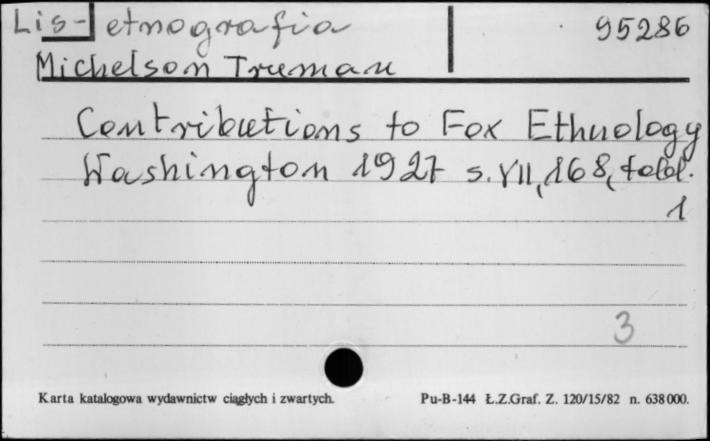 Lis- etnografia 95286
Michelson Truman
Contributions to Fox Ethnology
Washington 1927 s. VII, 168, tabl.
1
3
Karta katalogowa wydawnictw ciągłych i zwartych. Pu-B-144 Ł.Z.Graf. Z. 120/15/82 n. 638000.